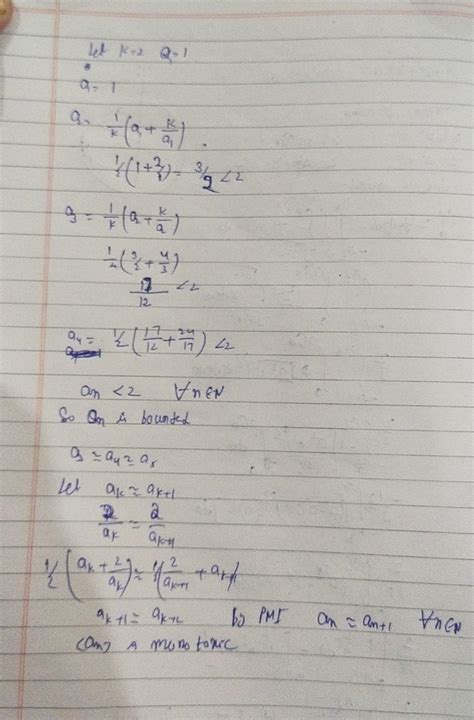 Let K=2 a=1
a₁ = 1
a₂ = 1/K (a₁ + K/a₁)
1/2 (1 + 2/1) = 3/2 < 2
a₃ = 1/K (a₂ + K/a₂)
1/2 (3/2 + 4/3)
17/12 < 2
a₄ = 1/2 (17/12 + 24/17) < 2
an < 2 ∀ n∈N
So an is bounded
a₃ ≃ a₄ ≃ a₅
Let aₖ ≃ aₖ₊₁
2/aₖ ≃ 2/aₖ₊₁
1/2 (aₖ + 2/aₖ) ≃ 1/2 (2/aₖ₊₁ + aₖ₊₁)
aₖ₊₁ ≃ aₖ₊₂ by PMI an ≃ an+1 ∀ n∈N
<an> is monotonic